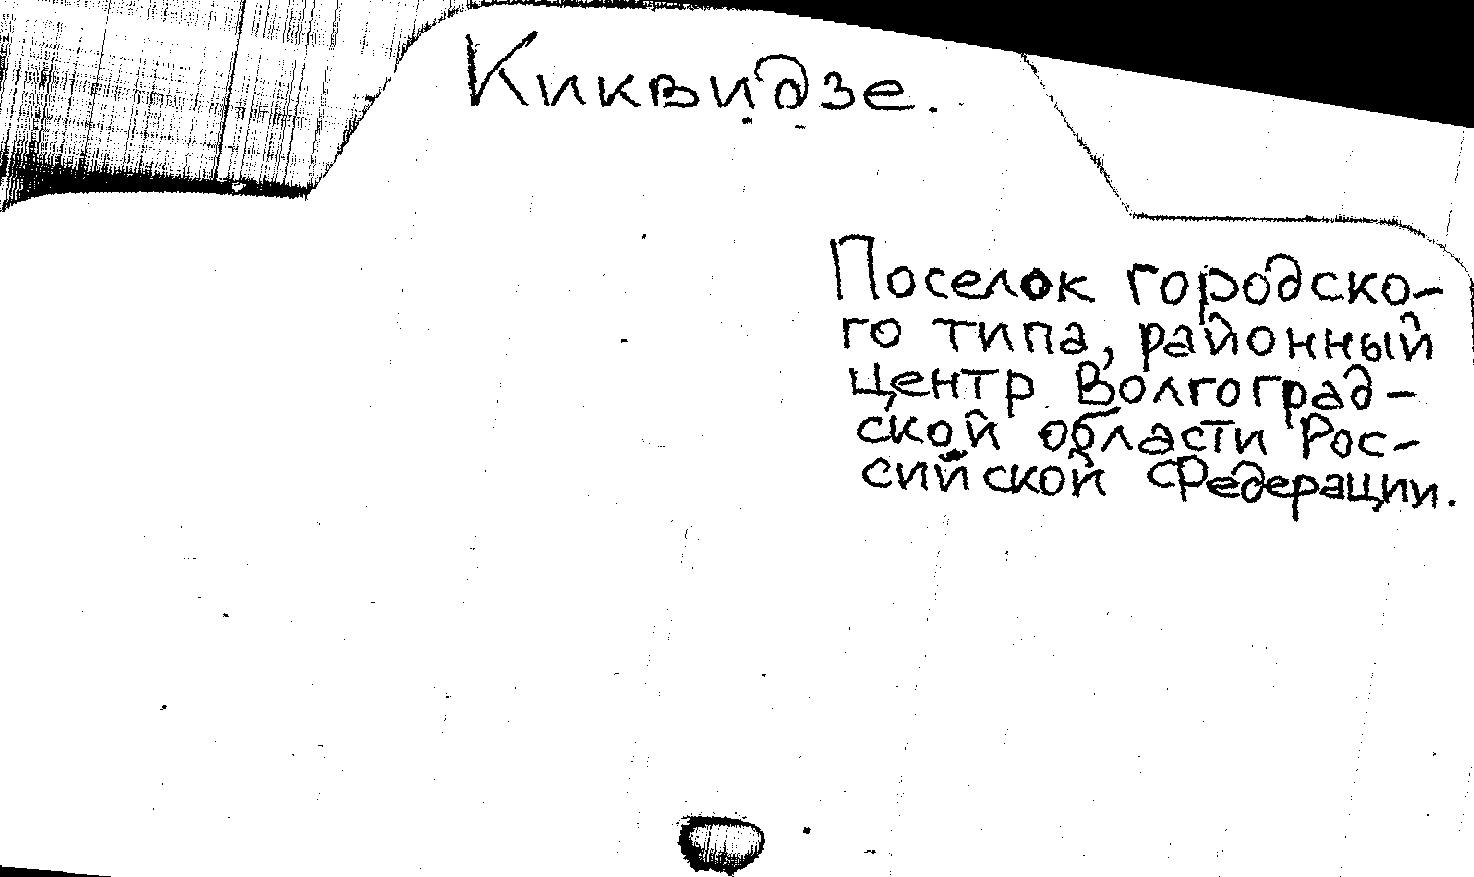 Киквидзе.
Поселок городско-
го типа, районный
центр Волгоград-
ской области Рос-
сийской Федерации.